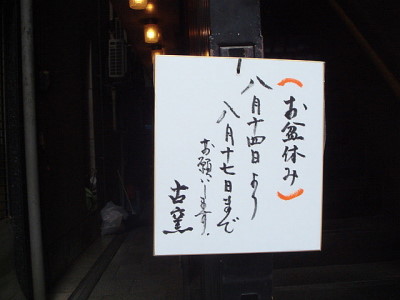 （お盆休み）
八月十四日より
八月十七日まで
お願いします。
古窯